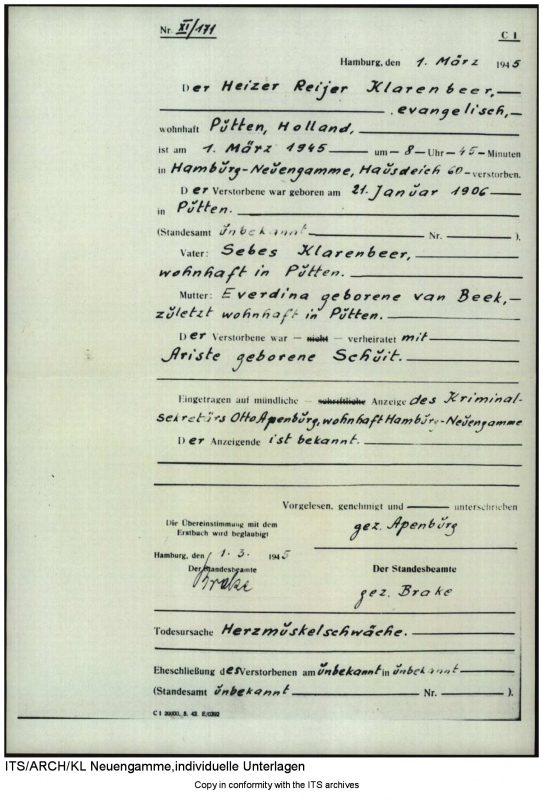 Nr. XI/171
C I
Hamburg, den 1. März 1945
Der Heizer Reijer Klarenbeer,
evangelisch,
wohnhaft Pütten, Holland,
ist am 1. März 1945 um 8 Uhr 45 Minuten
in Hamburg-Neuengamme, Hausdeich 60 verstorben.
Der Verstorbene war geboren am 21. Januar 1906
in Pütten.
(Standesamt unbekannt Nr. ).
Vater: Sebes Klarenbeer,
wohnhaft in Pütten.
Mutter: Everdina geborene van Beek,
zuletzt wohnhaft in Pütten.
Der Verstorbene war — nicht — verheiratet mit
Ariste geborene Schuit.
Eingetragen auf mündliche — schriftliche Anzeige des Kriminal-
sekretärs Otto Apenburg, wohnhaft Hamburg-Neuengamme
Der Anzeigende ist bekannt.
Vorgelesen, genehmigt und unterschrieben
gez. Apenburg
Die Übereinstimmung mit dem
Erstbuch wird beglaubigt
Hamburg, den 1. 3. 1945
Der Standesbeamte
Brake
Der Standesbeamte
gez. Brake
Todesursache Herzmuskelschwäche.
Eheschließung des Verstorbenen am unbekannt in unbekannt
(Standesamt unbekannt Nr. ).
C I 20000, 5. 43. E/0392
ITS/ARCH/KL Neuengamme,individuelle Unterlagen
Copy in conformity with the ITS archives